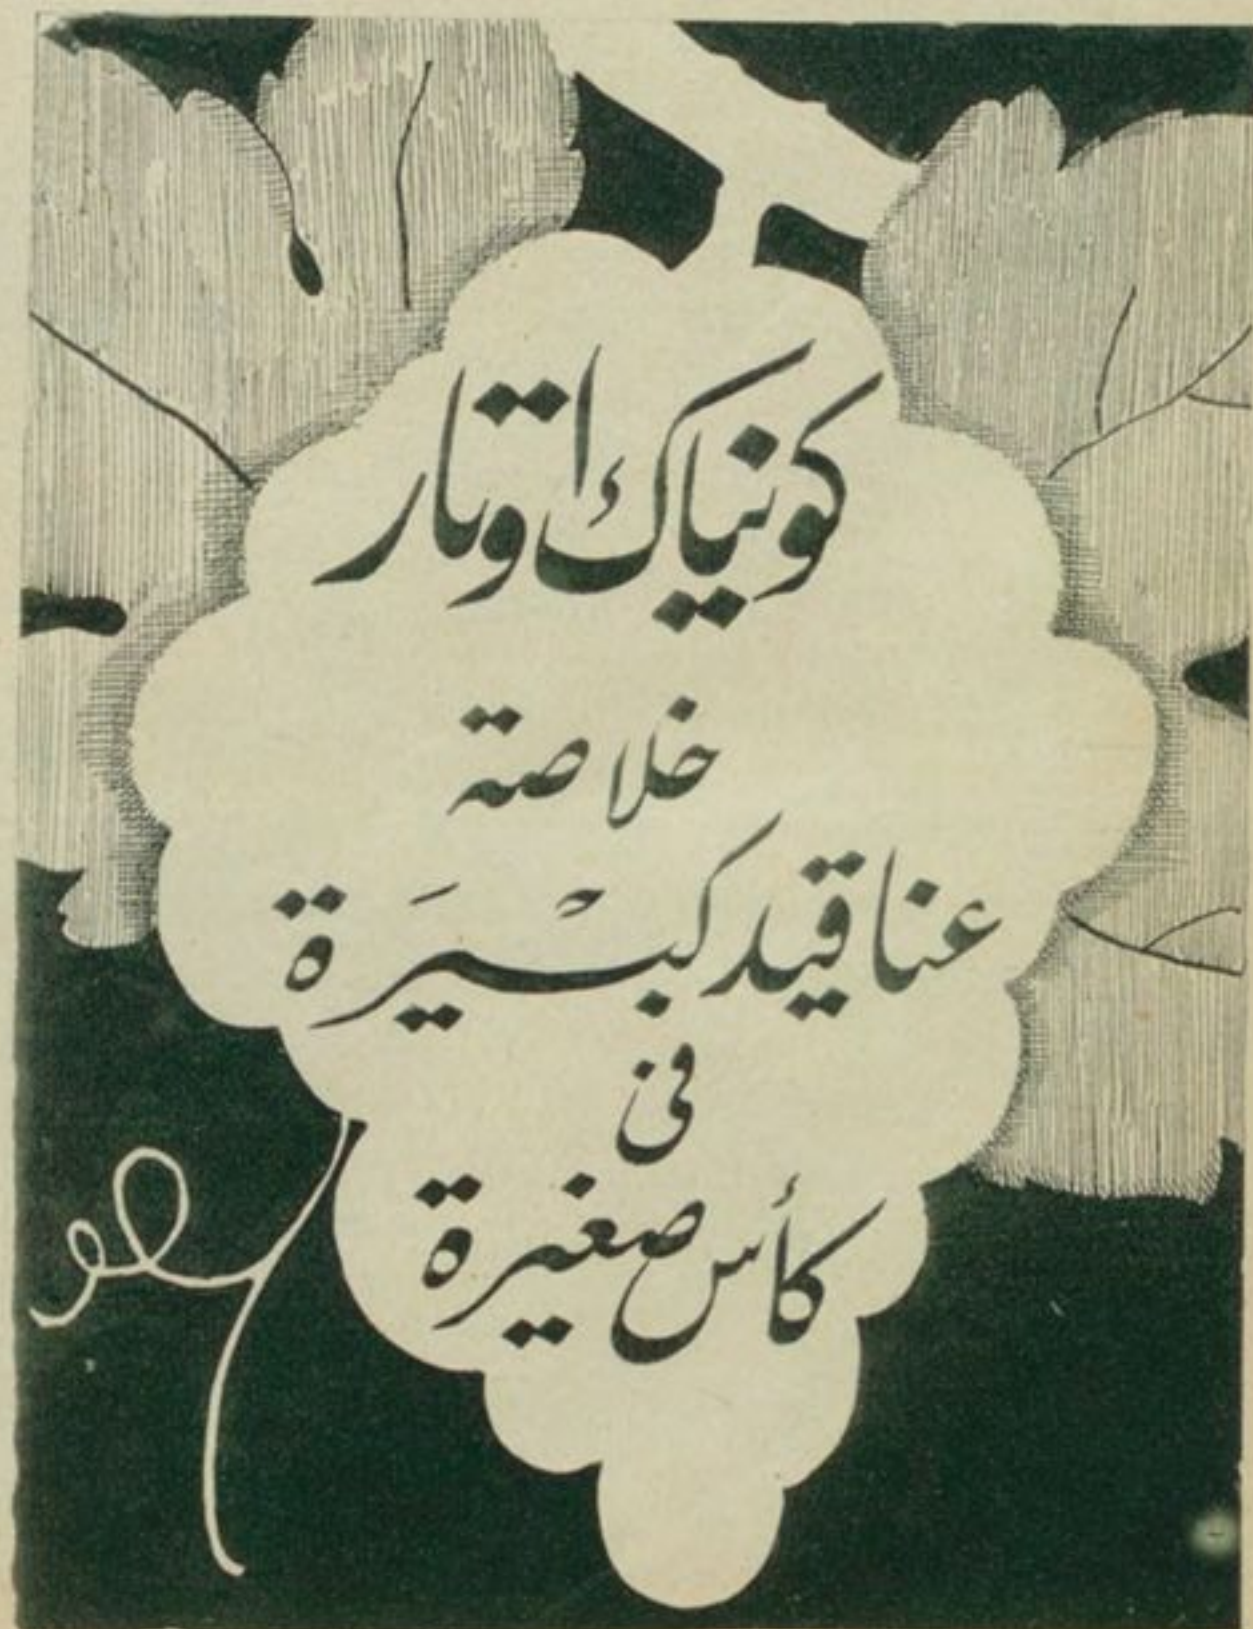 كونياك اوتار
خلاصة
عناقيد كبيرة
فى
كأس صغيرة